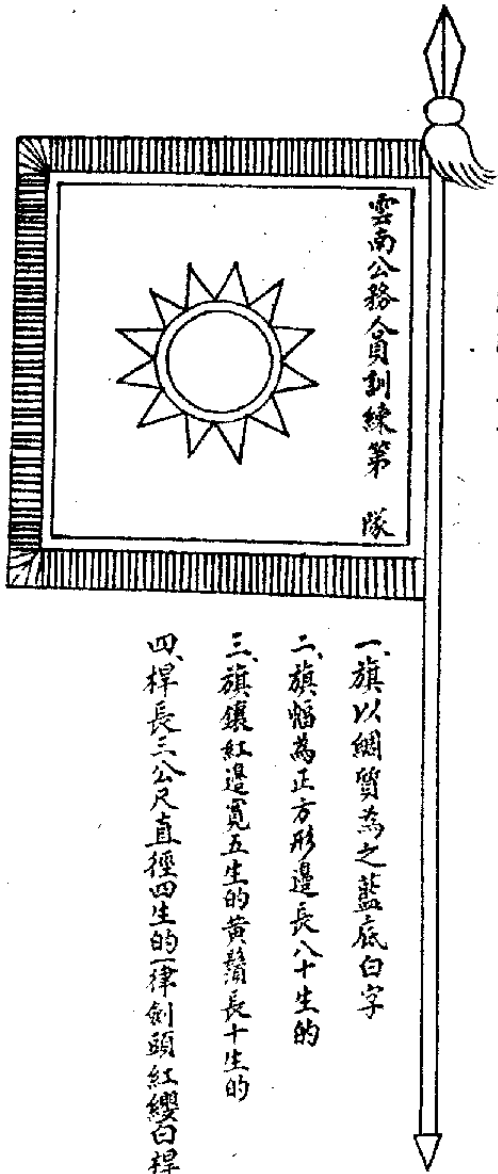 雲南公務人員訓練第 隊
一、旗以綢質為之藍底白字
二、旗幅為正方形邊長八十生的
三、旗鑲紅邊寬五生的黃鬚長十生的
四、桿長三公尺直徑四生的一律劍頭紅纓白桿